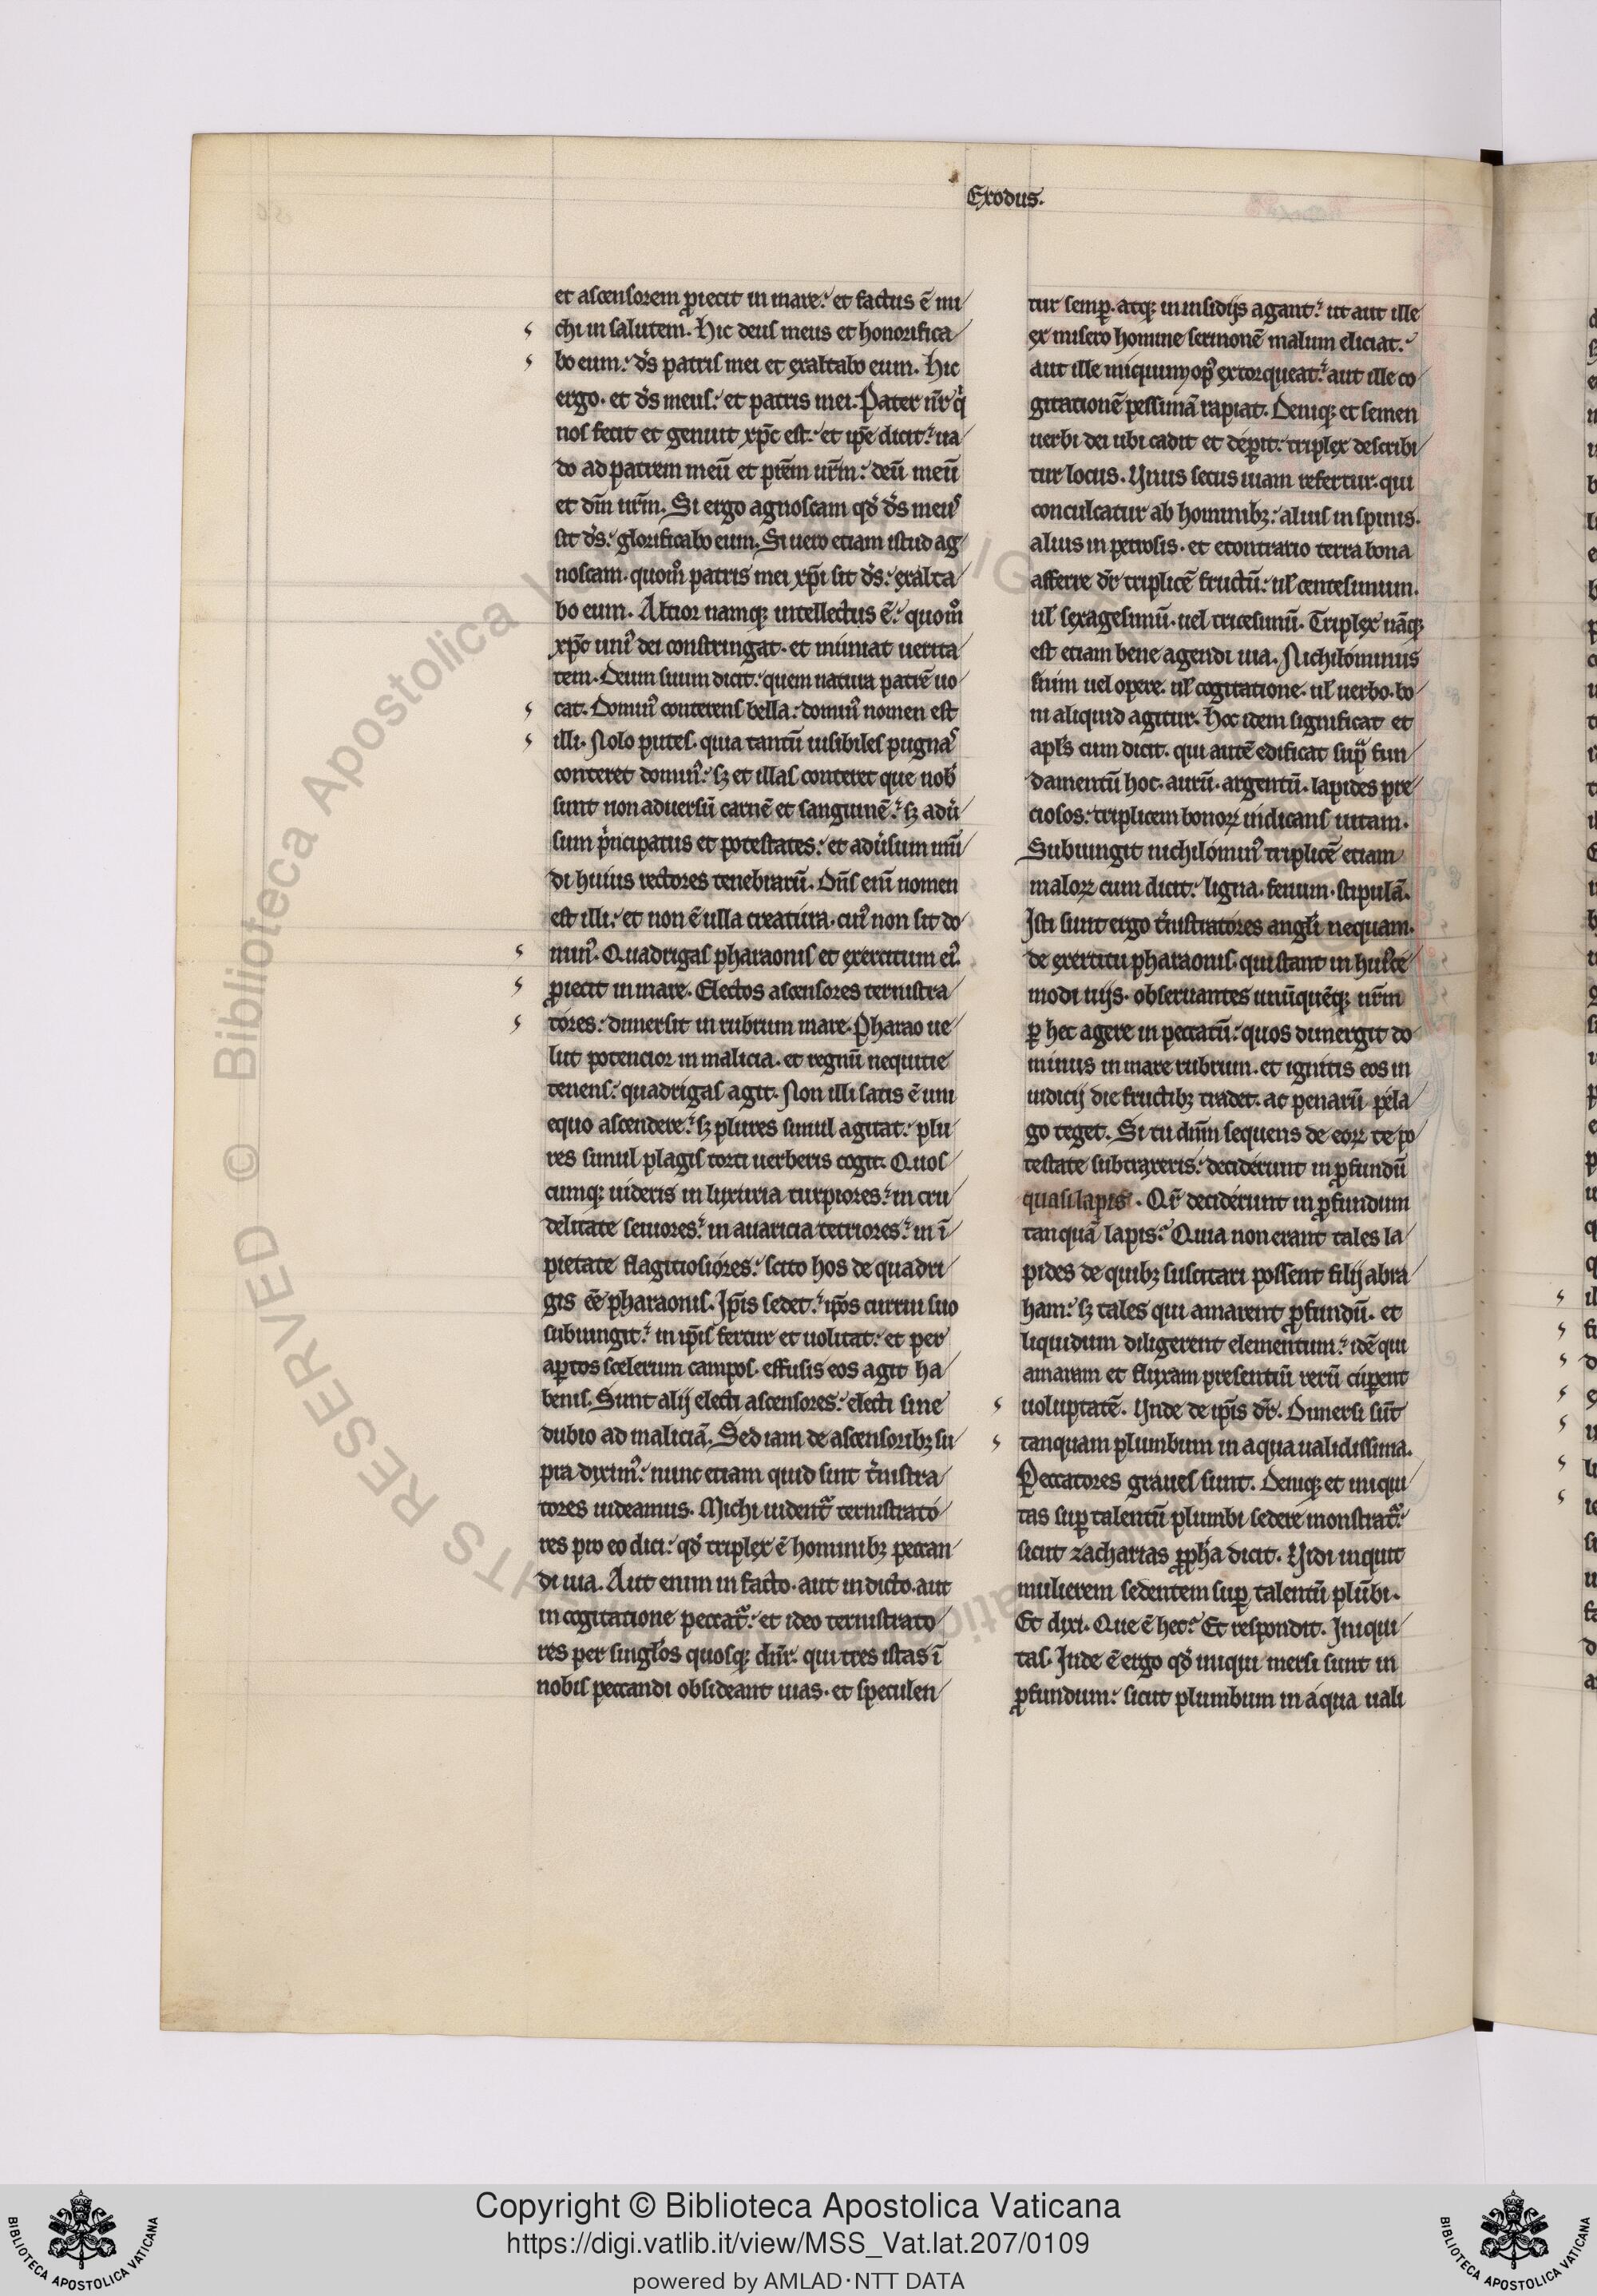 Exodus.
et ascensorem ꝓiecit in mare. et factus ē mi
chi in salutem. Hic deus meus et honorifica
bo eum. ds̄ patris mei et exaltabo eum. Hic
ergo. et ds̄ meus. et patris mei. Pater nr̄ qͥ
nos fecit et genuit xp̄c est. et ip̄e dicit. ua
do ad patrem meū et pr̄em ur̄m. deū meū
et dm̄ ur̄m. Si ergo agnoscam qd̄ ds̄ meus
sit ds̄. glorificabo eum. Si uero etiam istud ag
noscam. quom̊ patris mei xp̄i sit ds̄. exalta
bo eum. Altior namqꝫ intellectus ē. quom̊
xp̄c uniꝰ dei constringat. et muniat uerita
tem. Deum suum dicit. quem natura patrē uo
cat. Dominꝰ conterens bella. dominꝰ nomen est
illi. Nolo putes. quia tantū uisibiles pugnas
conteret dominꝰ. sꝫ et illas conteret que nob̄
sunt non aduersū carnē et sanguinē. sꝫ adū
sum pͥncipatus et potestates. et adūsum mū
di huius rectores tenebrarū. Dn̄s enī nomen
est illi. et non ē ulla creatura. cuiꝰ non sit do
minꝰ. Quadrigas pharaonis et exercitum eiꝰ.
ꝓiecit in mare. Electos ascensores ternistra
tores. dimersit in rubrum mare. Pharao ue
lut potencior in malicia. et regnū nequitie
tenens. quadrigas agit. Non illi satis ē um
equo ascendere. sꝫ plures simul agitat. plu
res simul plagis torti uerberis cogit. Quos
cumqꝫ uideris in luxuria turpiores. in cru
delitate seuiores. in auaricia tetriores. in ī
pietate flagitiosiores. scito hos de quadri
gis eē pharaonis. Ip̄is sedet. ip̄os currui suo
subiungit. in ip̄is fertur et uolitat. et per
aꝑtos scelerum campos. effusis eos agit ha
benis. Sunt alij electi ascensores. electi sine
dubio ad maliciā. Sed iam de ascensoribꝫ su
pra diximꝰ. nunc etiam quid sint t̄nistra
tores uideamus. Michi uidentᷓ ternistrato
res pro eo dici. qd̄ triplex ē hominibꝫ peccan
di uia. Aut enim in facto. aut in dicto. aut
in cogitatione peccatᷓ. et ideo ternistrato
res per singlōs quosqꝫ dn̄r. qui tres istas ī
nobis peccandi obsideant uias. et speculen
tur semꝑ. atqꝫ in insidijs agant. ut aut ille
ex misero homine sermonē malum eliciat.
aut ille iniquum opꝰ extorqueat. aut ille co
gitationē pessimā rapiat. Deniqꝫ et semen
uerbi dei ubi cadit et deꝑit. triplex describi
tur locus. Vnus secus uiam refertur. qui
conculcatur ab hominibꝫ. alius in spinis.
alius in petrosis. et econtrario terra bona
afferre dr̄ triplicē fructū. ul̄ centesimum.
ul̄ sexagesimū. uel tricesimū. Triplex nāqꝫ
est etiam bene agendi uia. Nichilominus
enim uel opere. ul̄ cogitatione. ul̄ uerbo. bo
ni aliquid agitur. Hoc idem significat et
apl̄s cum dicit. qui autē edificat supᷓ fun
damentū hoc. aurū. argentū. lapides pre
ciosos. triplicem bonoꝝ indicans uitam.
Subiungit nichilominꝰ triplicē etiam
maloꝝ cum dicit. ligna. fenum. stipulā.
Isti sunt ergo t̄nistratores angl̄i nequam.
de exercitu pharaonis. qui stant in huiꝰce
modi uijs. obseruantes unūquēqꝫ ur̄m
ꝑ hec agere in peccatū. quos dimergit do
minus in mare rubrum. et ignitis eos in
iudicij die fructibꝫ tradet. ac penarū pela
go teget. Si tu dn̄m sequens de eoꝝ te po
testate subtraxeris. deciderunt in ꝓfundū
quasi lapis. Qr̄ deciderunt in ꝓfundum
tanquā lapis. Quia non erant tales la
pides de quibꝫ suscitari possent filij abra
ham. sꝫ tales qui amarent ꝓfundū. et
liquidum diligerent elementum. idē qui
amaram et fluxam presentiū rerū cuꝑent
uoluptatē. Vnde de ip̄is dr̄. Dimersi sūt
tanquam plumbum in aqua ualidissima.
Peccatores graues sunt. Deniqꝫ et iniqui
tas suꝑ talentū plumbi sedere monstratᷓ.
sicut zacharias ꝓph̄a dicit. Vidi inquit
mulierem sedentem suꝑ talentū plūbi.
Et dixi. Que ē hec. Et respondit. Iniqui
tas. Inde ē ergo qd̄ iniqui mersi sunt in
ꝓfundum. sicut plumbum in aqua uali
Copyright © Biblioteca Apostolica Vaticana
https://digi.vatlib.it/view/MSS_Vat.lat.207/0109
powered by AMLAD·NTT DATA
BIBLIOTECA APOSTOLICA VATICANA
BIBLIOTECA APOSTOLICA VATICANA